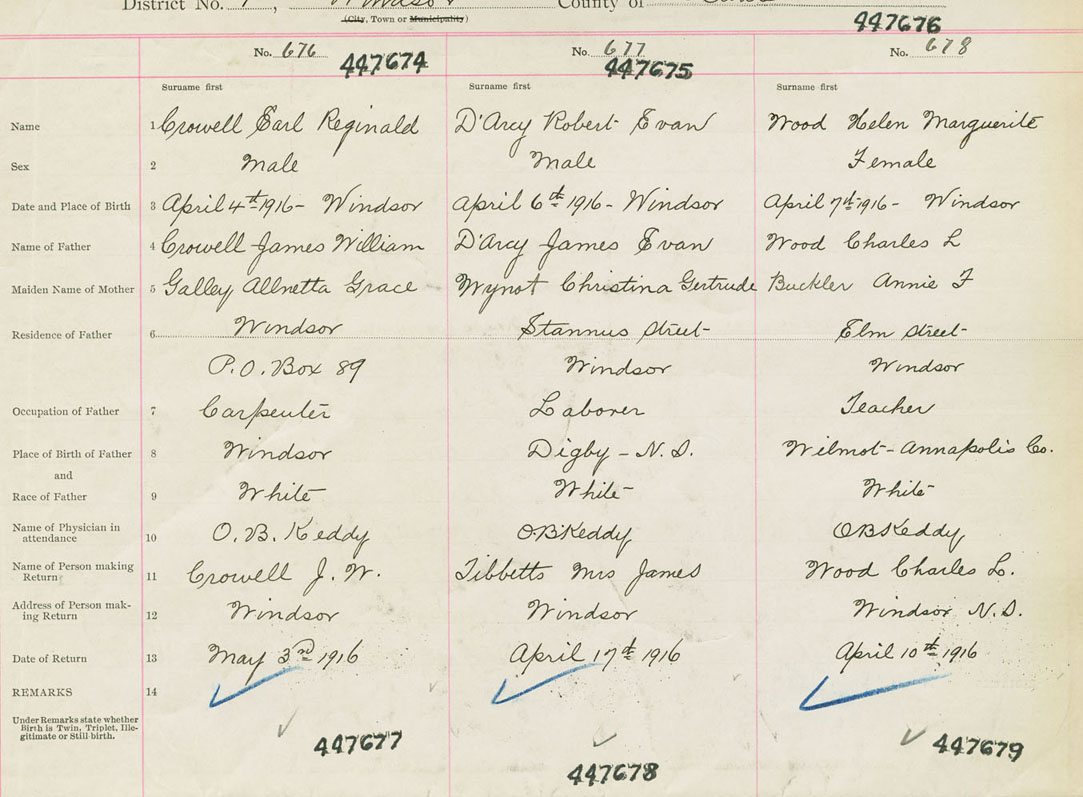 District No. Windsor County of
(City, Town or Municipality)
447676
No. 676 447674 No. 677 447675 No. 678
Surname first Surname first Surname first
Name 1 Crowell Earl Reginald D'Arcy Robert Evan Wood Helen Marguerite
Sex 2 Male Male Female
Date and Place of Birth 3 April 4th 1916 - Windsor April 6th 1916 - Windsor April 7th 1916 - Windsor
Name of Father 4 Crowell James William D'Arcy James Evan Wood Charles L
Maiden Name of Mother 5 Galley Allnetta Grace Wynot Christina Gertrude Buckler Annie F
Residence of Father 6 Windsor Stannus Street Elm Street
P.O. Box 89 Windsor Windsor
Occupation of Father 7 Carpenter Laborer Teacher
Place of Birth of Father 8 Windsor Digby - N.S. Wilmot - Annapolis Co.
and
Race of Father 9 White White White
Name of Physician in
attendance 10 O. B. Keddy O B Keddy O B Keddy
Name of Person making
Return 11 Crowell J. W. Tibbetts Mrs James Wood Charles L.
Address of Person mak-
ing Return 12 Windsor Windsor Windsor N.S.
Date of Return 13 May 3rd 1916 April 17th 1916 April 10th 1916
REMARKS 14
Under Remarks state whether
Birth is Twin, Triplet, Ille-
gitimate or Still birth.
447677 447678 447679